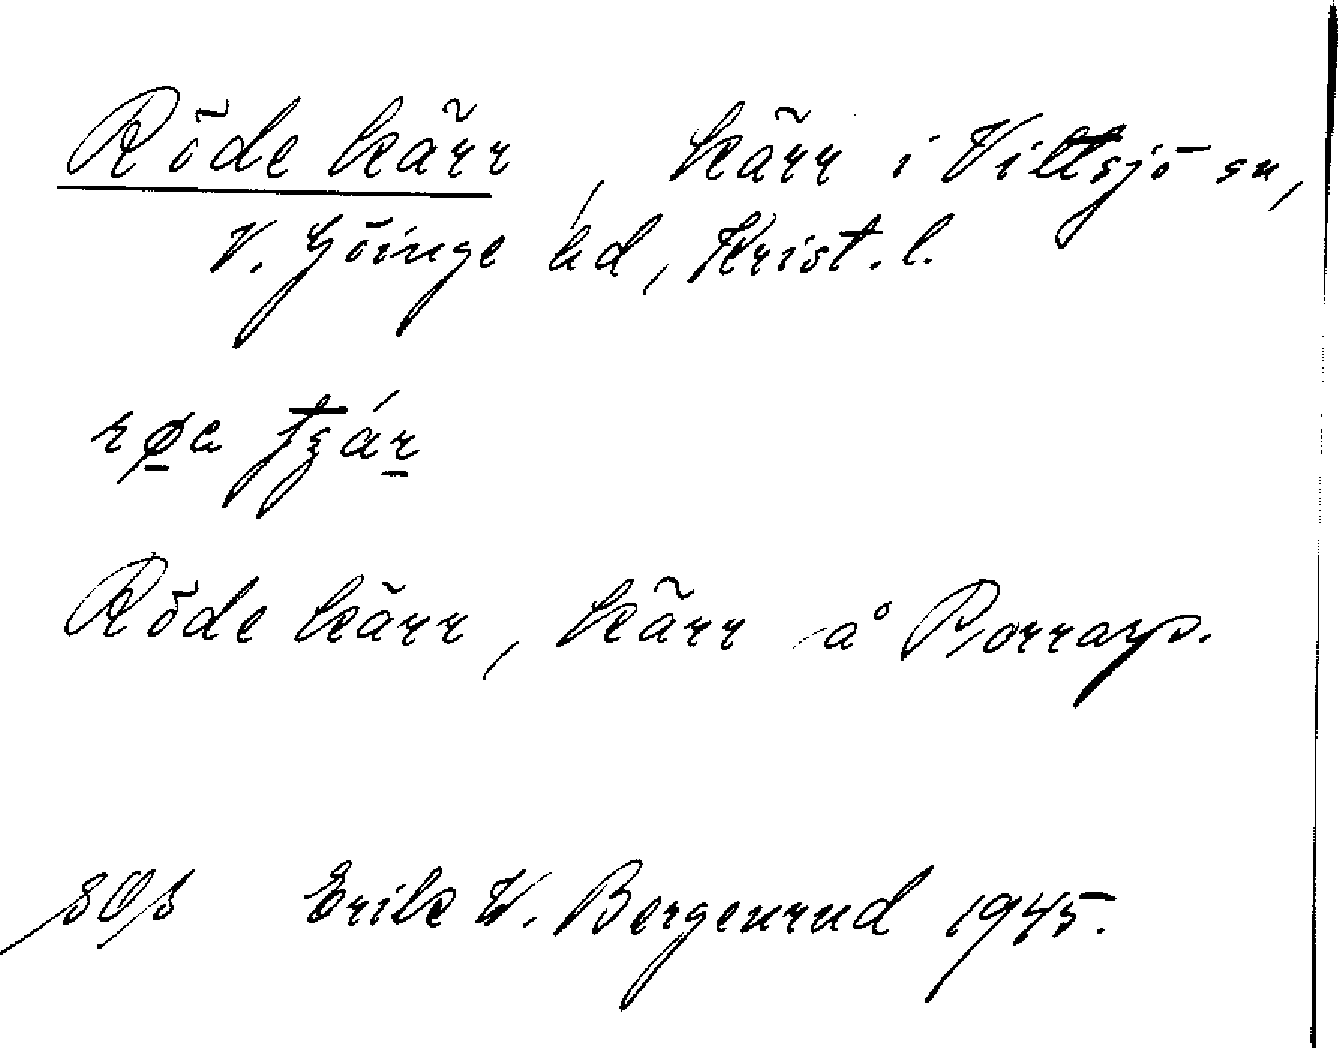 Röde kärr, kärr i Vittsjö sn,
V. Göinge hd, Krist. l.
Röde kärr, kärr å Porrarp.
Erik W. Bergenrud 1945.